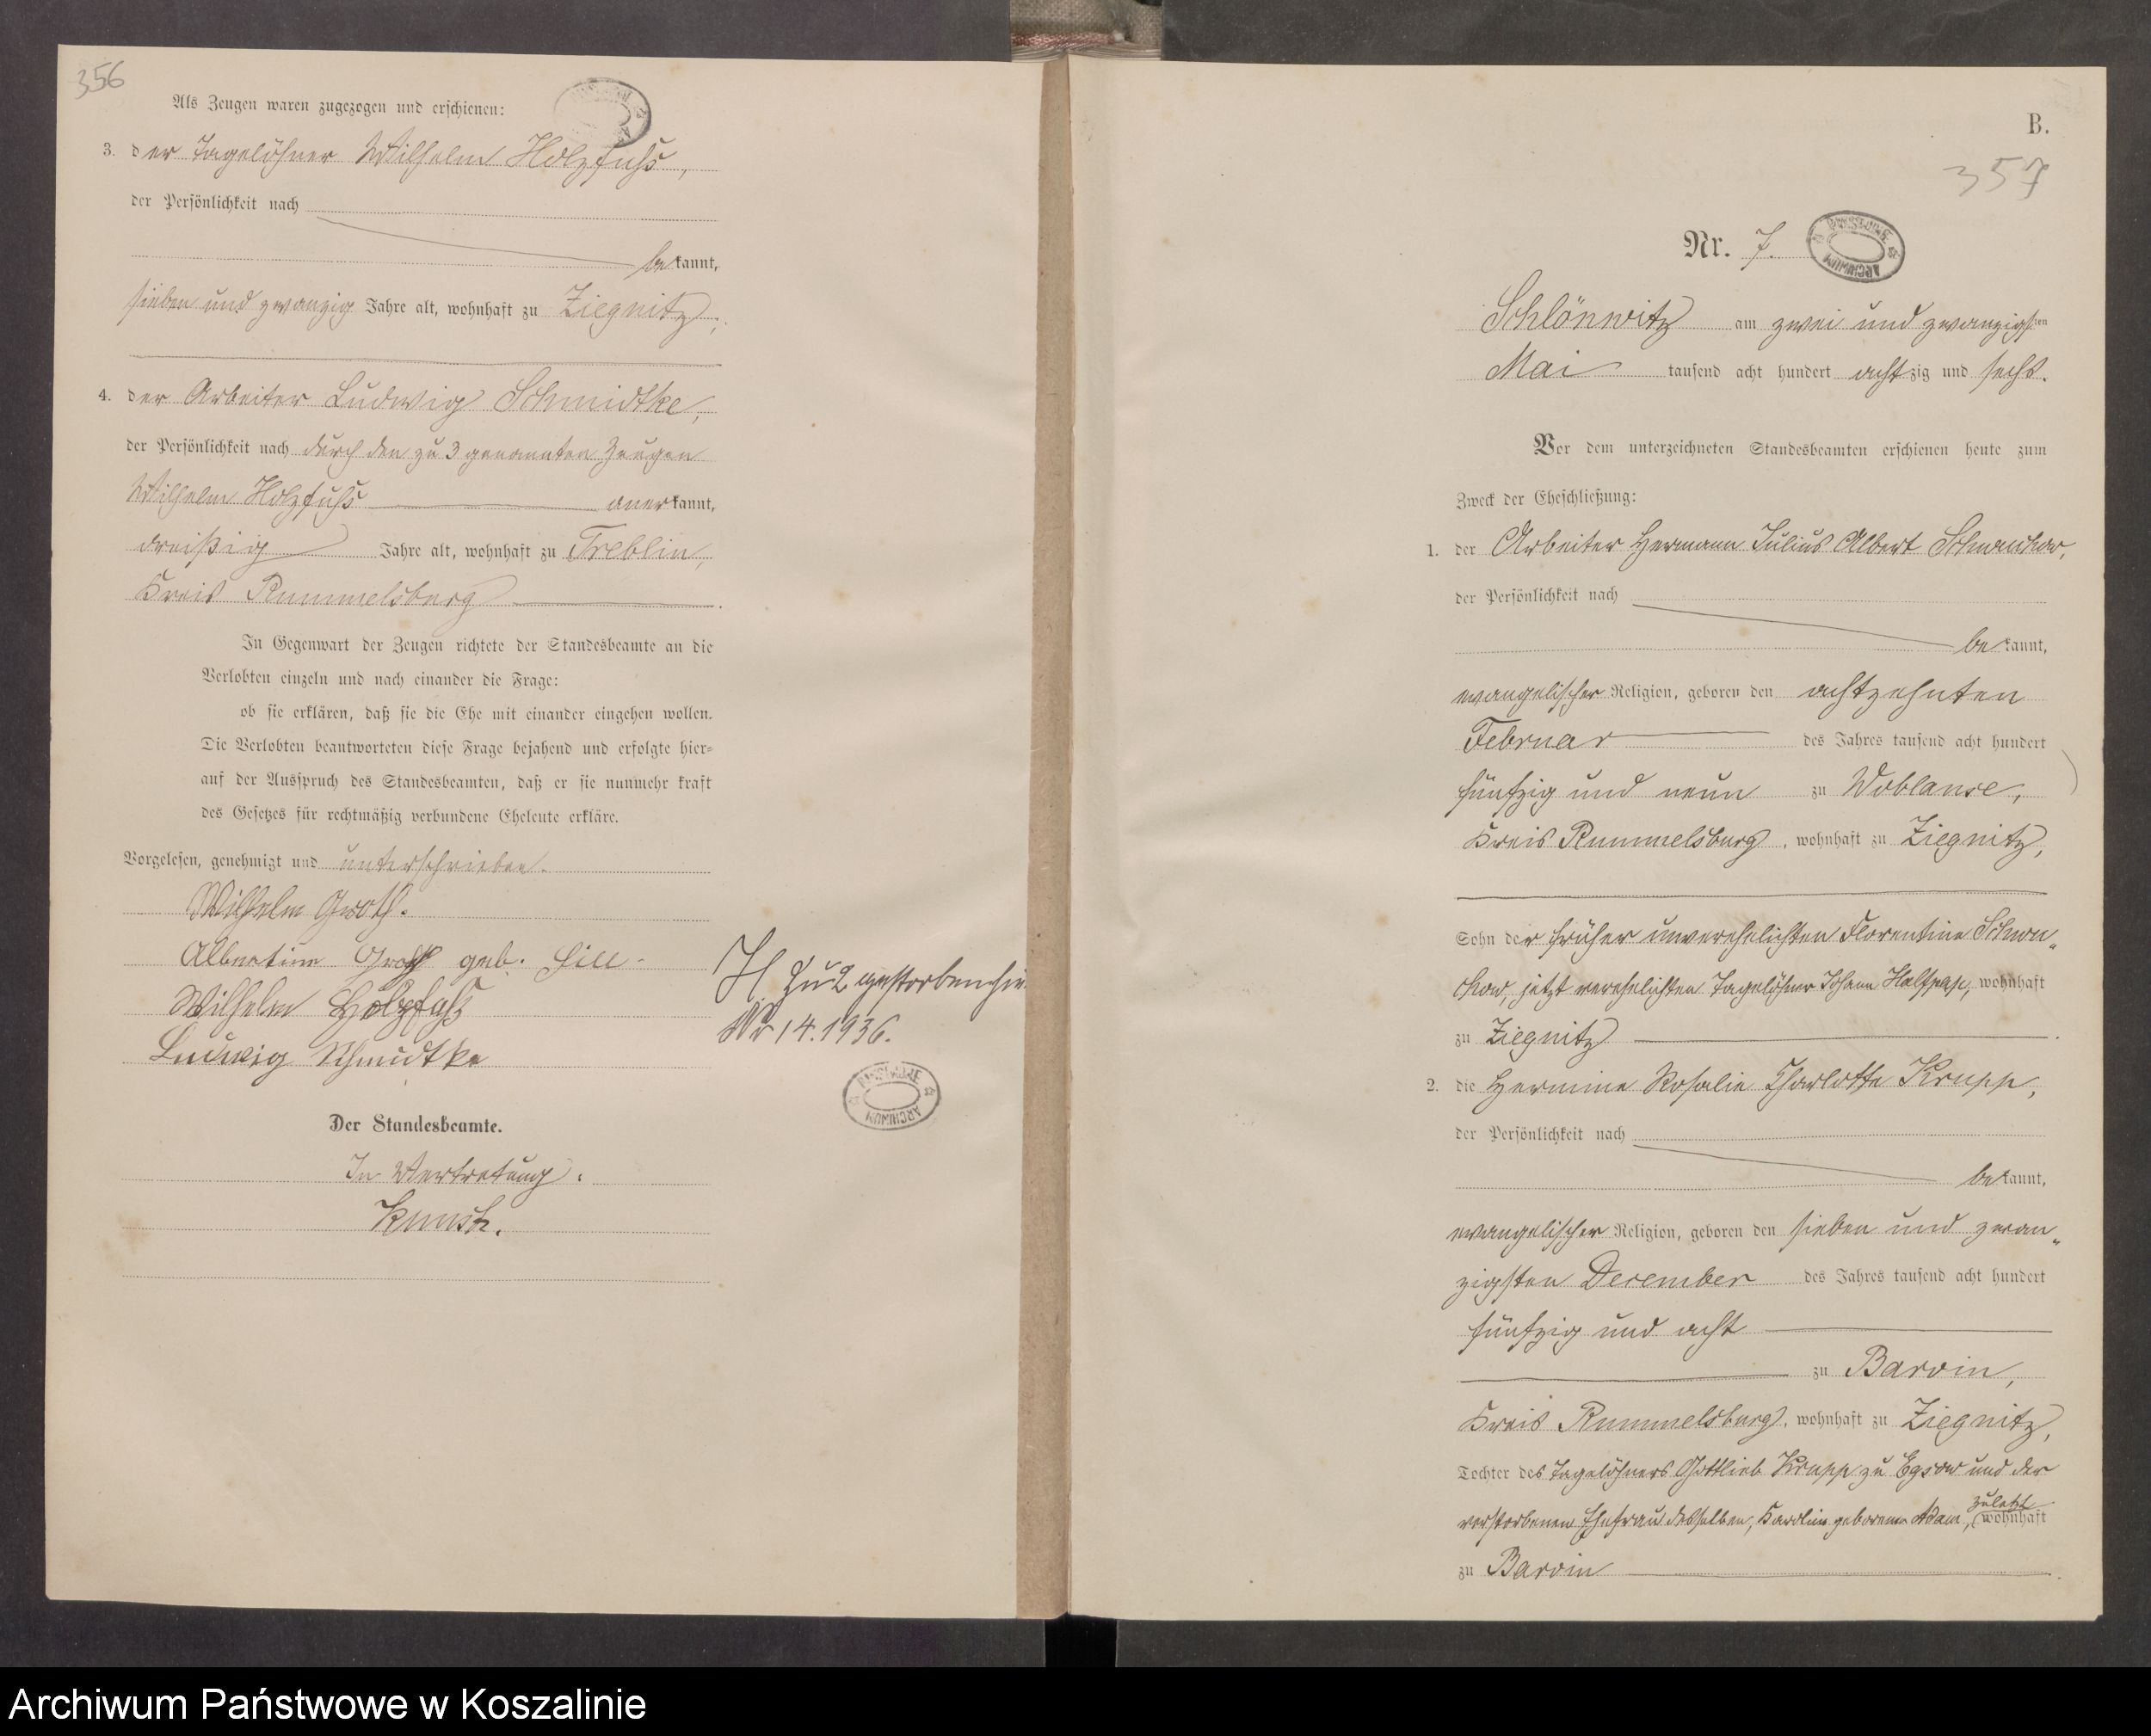 356
Als Zeugen waren zugezogen und erschienen:
3. der Tagelöhner Wilhelm Holzfuhs,
der Persönlichkeit nach
bekannt,
sieben und zwanzig Jahre alt, wohnhaft zu Ziegnitz,
4. der Arbeiter Ludwig Schmidtke,
der Persönlichkeit nach durch den zu 3 genannten Zeugen
Wilhelm Holzfuhs anerkannt,
dreißig Jahre alt, wohnhaft zu Treblin,
Kreis Rummelsburg.
In Gegenwart der Zeugen richtete der Standesbeamte an die
Verlobten einzeln und nach einander die Frage:
ob sie erklären, daß sie die Ehe mit einander eingehen wollen.
Die Verlobten beantworteten diese Frage bejahend und erfolgte hier=
auf der Ausspruch des Standesbeamten, daß er sie nunmehr kraft
des Gesetzes für rechtmäßig verbundene Eheleute erkläre.
Vorgelesen, genehmigt und unterschrieben.
Wilhelm Groth.
Albertine Groth geb.
Wilhelm Holzfuhs
Ludwig Schmidtke
Der Standesbeamte.
In Vertretung.
zu 2 gestorben hier
Nr 14.1936.
ARCHIWUM PAŃSTWOWE
B.
357
Nr. 7.
ARCHIWUM PAŃSTWOWE
Schlönwitz am zwei und zwanzigsten
Mai tausend acht hundert achtzig und sechs.
Vor dem unterzeichneten Standesbeamten erschienen heute zum
Zweck der Eheschließung:
1. der Arbeiter Hermann Julius Albert
der Persönlichkeit nach
bekannt,
evangelischer Religion, geboren den achtzehnten
Februar des Jahres tausend acht hundert
fünfzig und neun zu Woblanse,
Kreis Rummelsburg, wohnhaft zu Ziegnitz,
Sohn der früher unverehelichten Florentine
jetzt verehelichten Tagelöhner Johann Halfpap, wohnhaft
zu Ziegnitz.
2. die Hermine Rosalie Charlotte Krupp,
der Persönlichkeit nach
bekannt,
evangelischer Religion, geboren den sieben und zwan„
zigsten December des Jahres tausend acht hundert
fünfzig und acht
zu Barvin,
Kreis Rummelsburg, wohnhaft zu Ziegnitz,
Tochter des Tagelöhners Gottlieb Krupp zu Egsow und der
verstorbenen Ehefrau desselben, Karoline geborenen Adam, zuletzt wohnhaft
zu Barvin.
Archiwum Państwowe w Koszalinie